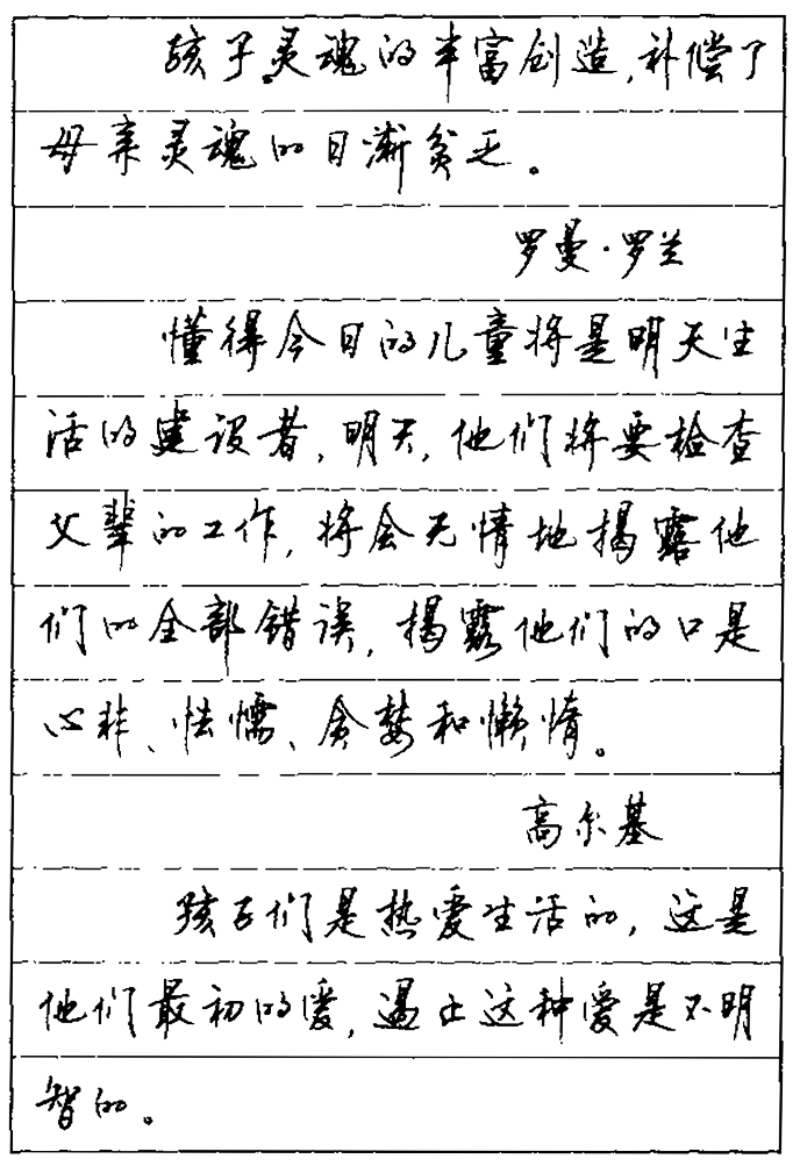 孩子灵魂的丰富创造,补偿了
母亲灵魂的日渐贫乏。
罗曼·罗兰
懂得今日的儿童将是明天生
活的建设者,明天,他们将要检查
父辈的工作,将会无情地揭露他
们的全部错误,揭露他们的口是
心非、怯懦、贪婪和懒惰。
高尔基
孩子们是热爱生活的,这是
他们最初的爱,遏止这种爱是不明
智的。